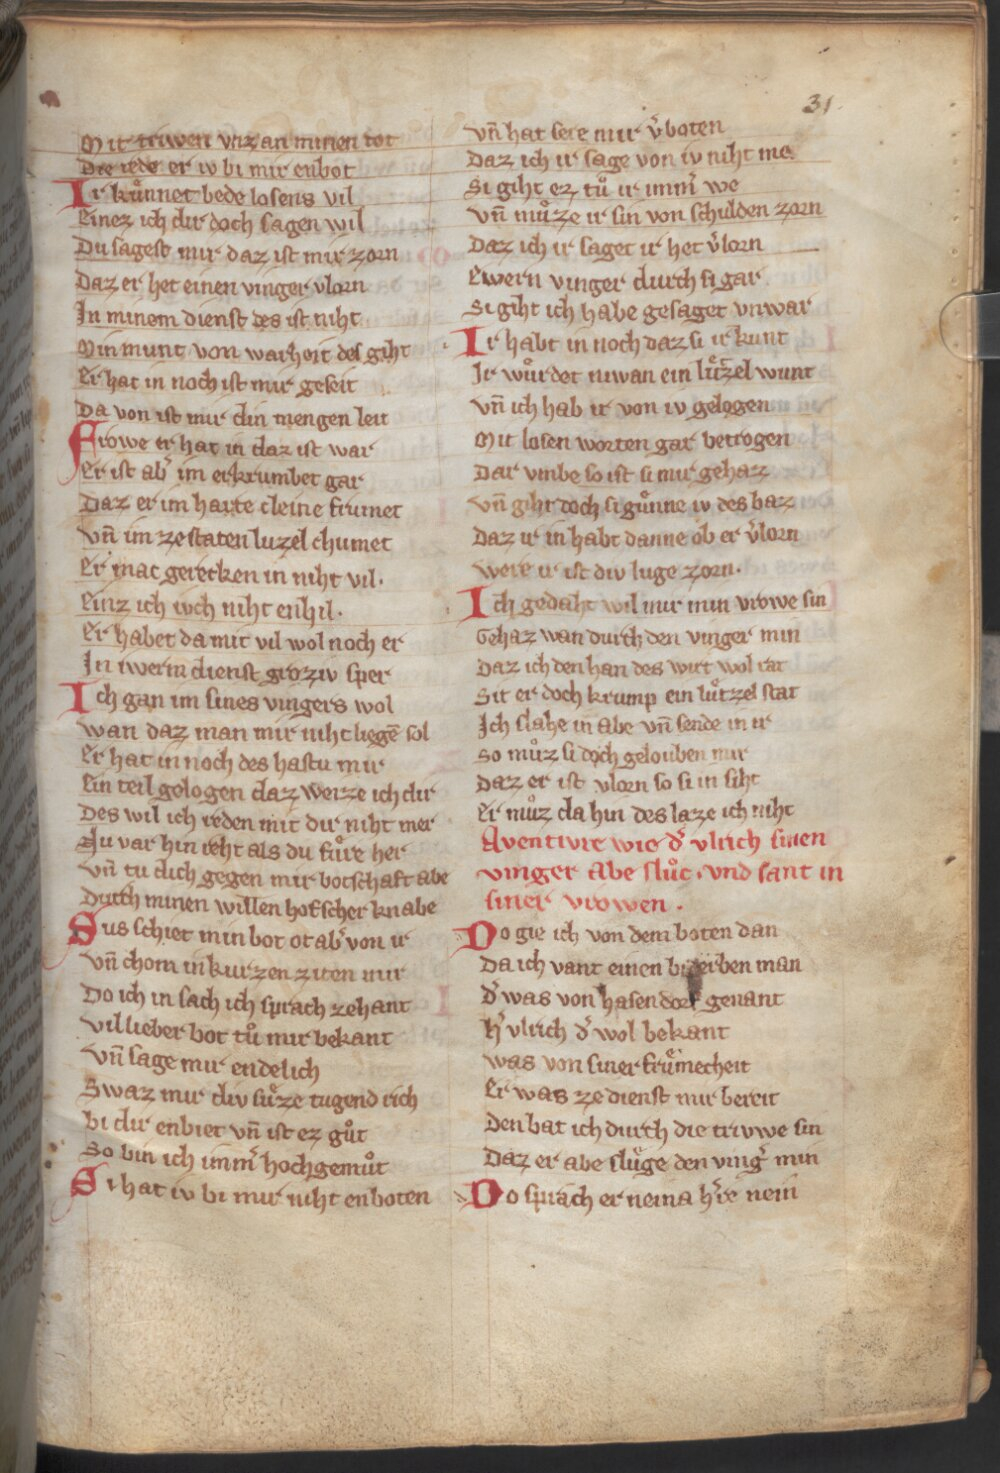 31
Mit triwen vnz an minen tot
Die rede er iv bi mir enbot
Ir kuͦnnet bede losens vil
Einez ich dir doch sagen wil
Du sagest mir daz ist mir zorn
Daz er het einen vinger vlorn
In minem dienst des ist niht
Min munt von warheit des giht
Er hat in noch ist mir geseit
Da von ist mir din mengen leit
Frowe er hat in daz ist war
Er ist ab̓ im erkrumbet gar
Daz er im harte cleine frumet
Vn̄ im ze staten luzel chumet
Er mac gerecken in niht vil.
Einz ich iwch niht enhil.
Er habet da mit vil wol noch er
In iwerm dienst groziv sper
Ich gan im sines vingers wol
wan daz man mir niht liegē sol
Er hat in noch des hastu mir
Ein teil gelogen daz weize ich dir
Des wil ich reden mit dir niht mer
Nu var hin reht als du fuͤre her
Vn̄ tu dich gegen mir botschaft abe
Durch minen willen hofscher knabe
Sus schiet min bot ot ab̓ von ir
Vn̄ chom in kurzen ziten mir
Do ich in sach ich sprach zehant
Vil lieber bot tuͦ mir bekant
Vn̄ sage mir endelich
Swaz mir div suͤze tugend rich
bi dir enbiet vn̄ ist ez guͦt
So bin ich imm̓ hochgemuͦt
Si hat iv bi mir niht enboten
Vn̄ hat sere mir v̓boten
Daz ich ir sage von iv niht me.
Si giht ez tuͦ ir imm̓ we
Vn̄ muͦze ir sin von schulden zorn
Daz ich ir saget ir het v̓lorn
Ewern vinger durch si gar
Si giht ich habe gesaget vnwar
Ir habt in noch daz si ir kunt
Ir wuͦrdet niwan ein luͤtzel wunt
Vn̄ ich hab ir von iv gelogen
Mit losen worten gar betrogen
Dar vmbe so ist si mir gehaz
Vn̄ giht doch si guͦnne iv des baz
Daz ir in habt danne ob er v̓lorn
were ir ist div luge zorn.
Ich gedaht wil mir min vrowe sin
Gehaz wan durch den vinger min
Daz ich den han des wirt wol rat
Sit er doch krump ein luͤtzel stat
Ich slahe in abe vn̄ sende in ir
So muͦz si doch gelouben mir
Daz er ist vlorn so si in siht
Er muͦz da hin des laze ich niht
Aventivre wie d̓ vlrich sinen
vinger abe sluͦc. vnd sant in
siner vrowen.
Do gie ich von dem boten dan
Da ich vant einen biderben man
d̓ was von hasendorf genant
h̓ vlrich d̓ wol bekant
was von siner fruͤmecheit
Er was ze dienst mir bereit
Den bat ich durch die trivwe sin
Daz er abe sluͤge den ving̓ min
Do sprach er neina h̓re nein